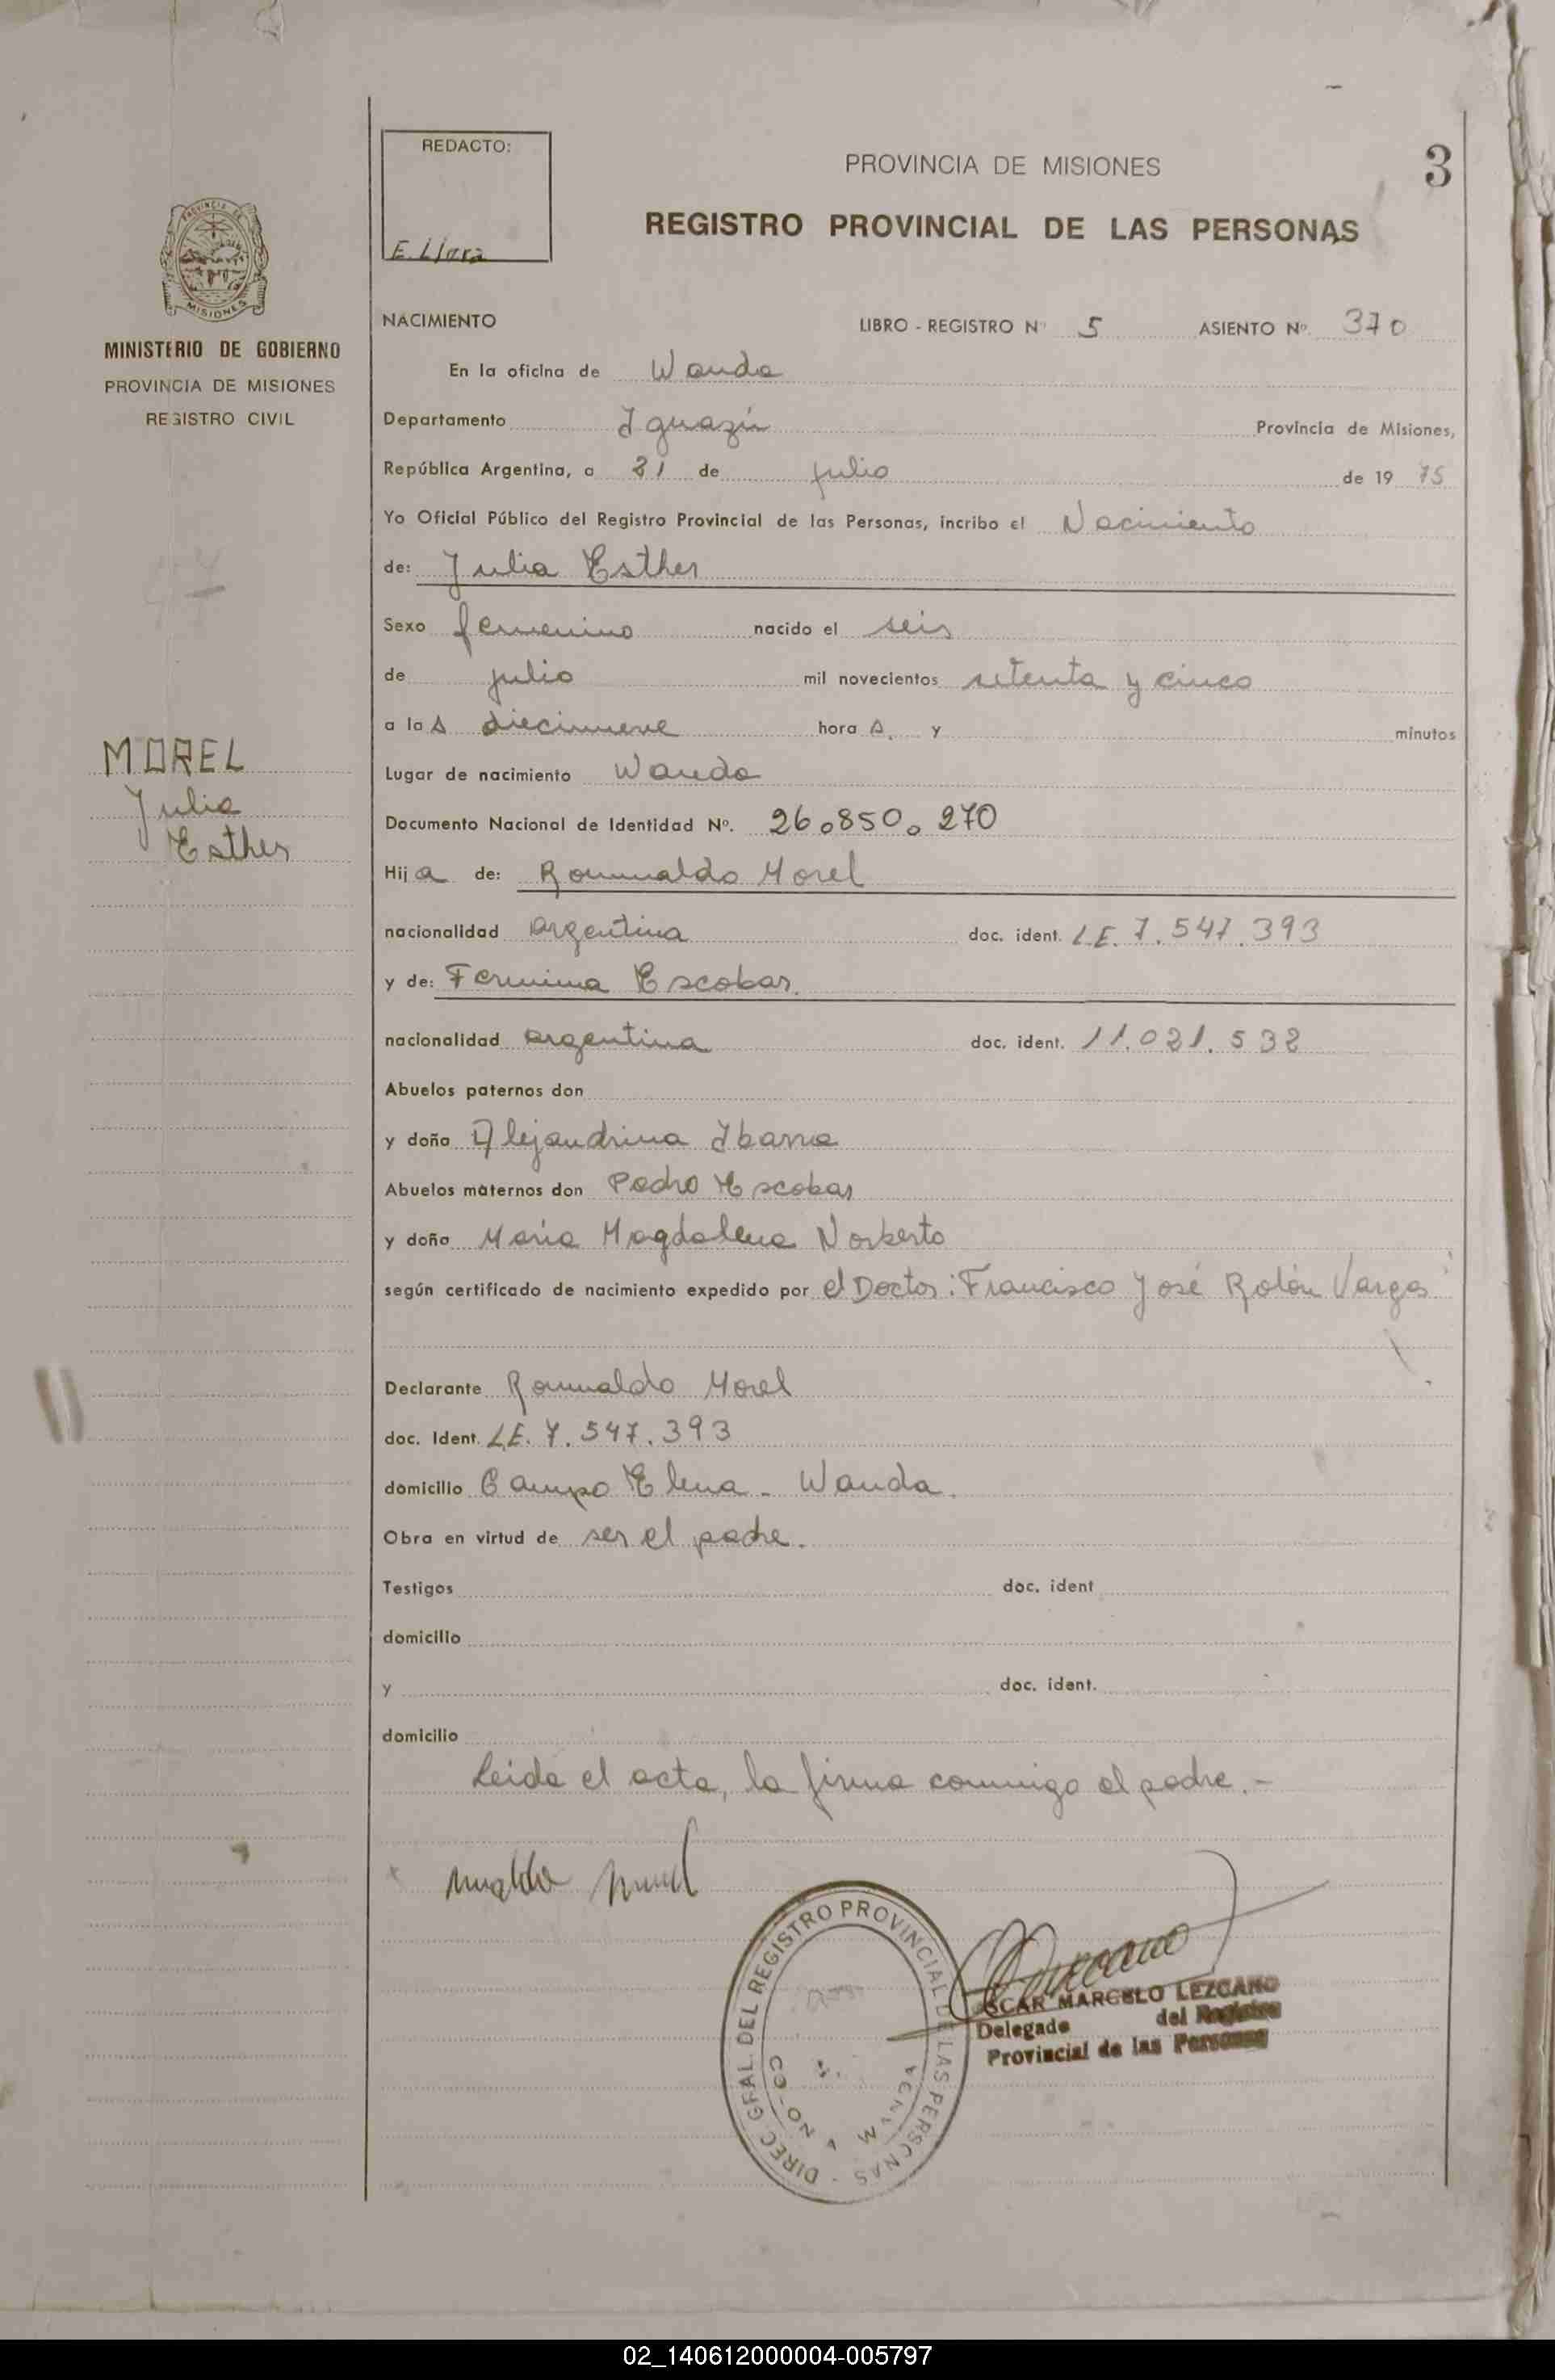 REDACTO:
PROVINCIA DE MISIONES
3
REGISTRO PROVINCIAL DE LAS PERSONAS
PROVINCIA DE
MISIONES
MINISTERIO DE GOBIERNO
PROVINCIA DE MISIONES
REGISTRO CIVIL
NACIMIENTO LIBRO - REGISTRO Nº 5 ASIENTO Nº 370
En la oficina de Wanda
Departamento Iguazú Provincia de Misiones,
República Argentina, a 31 de julio de 19 75
Yo Oficial Público del Registro Provincial de las Personas, incribo el Nacimiento
de: Julia Esther
Sexo femenino nacido el seis
de julio mil novecientos setenta y cinco
a las diecinueve hora s. y minutos
MOREL
Julia
Esther
Lugar de nacimiento Wanda
Documento Nacional de Identidad Nº. 26.850.270
Hija de: Romualdo Morel
nacionalidad argentina doc. ident. L.E. 7.547.393
y de: Fermina Escobar.
nacionalidad argentina doc. ident. 11.021.532
Abuelos paternos don
y doña Alejandrina Ibarra
Abuelos maternos don Pedro Escobar
y doña María Magdalena Norberto
según certificado de nacimiento expedido por el Doctor: Francisco José Rolón Vargas
Declarante Romualdo Morel
doc. Ident. L.E. 7.547.393
domicilio Campo Elena - Wanda.
Obra en virtud de ser el padre.
Testigos doc. ident
domicilio
y doc. ident.
domicilio
Leida el acta, la firma conmigo el padre.-
DIREC. GRAL. DEL REGISTRO PROVINCIAL DE LAS PERSONAS
WANDA
OSCAR MARCELO LEZCANO
Delegado del Registro
Provincial de las Personas
02_140612000004-005797